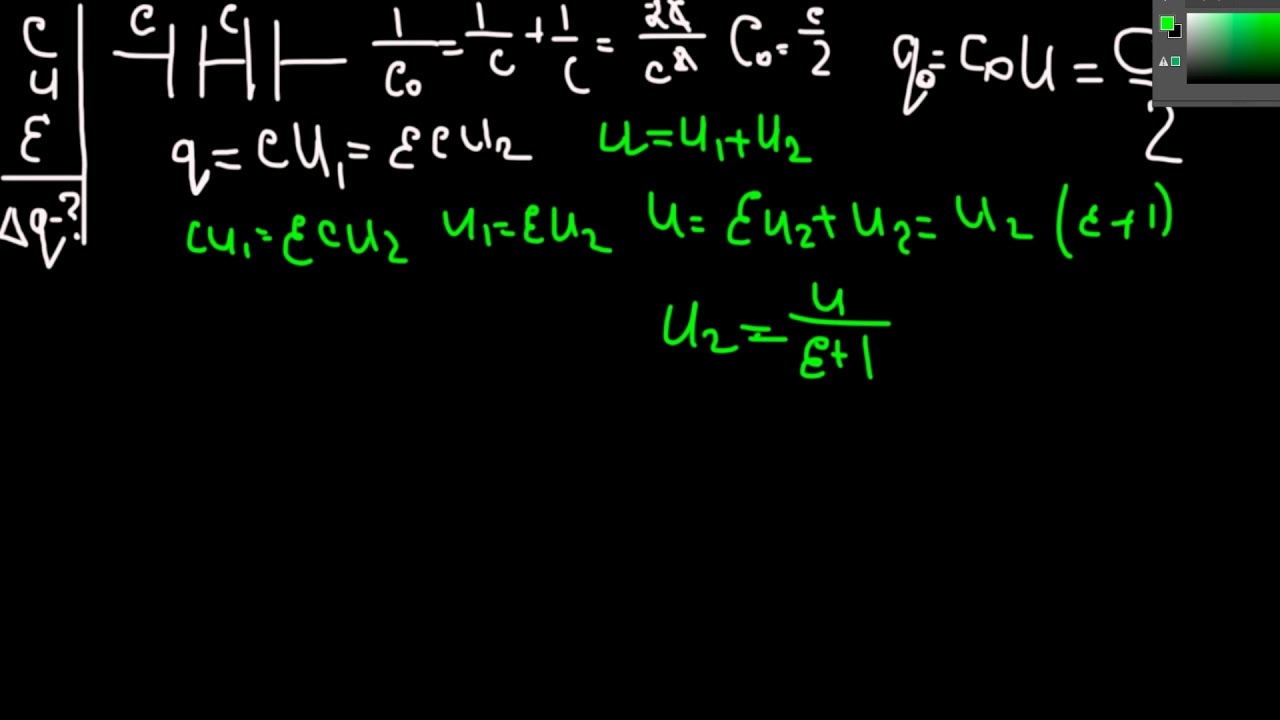 C
U
ε
Δq-?
C C 1/C₀ = 1/C + 1/C = 2C/C² C₀ = C/2 q₀ = C₀U = 2
q = CU₁ = εCU₂ U = U₁ + U₂
CU₁ = εCU₂ U₁ = εU₂ U = εU₂ + U₂ = U₂ (ε+1)
U₂ = U/ε+1